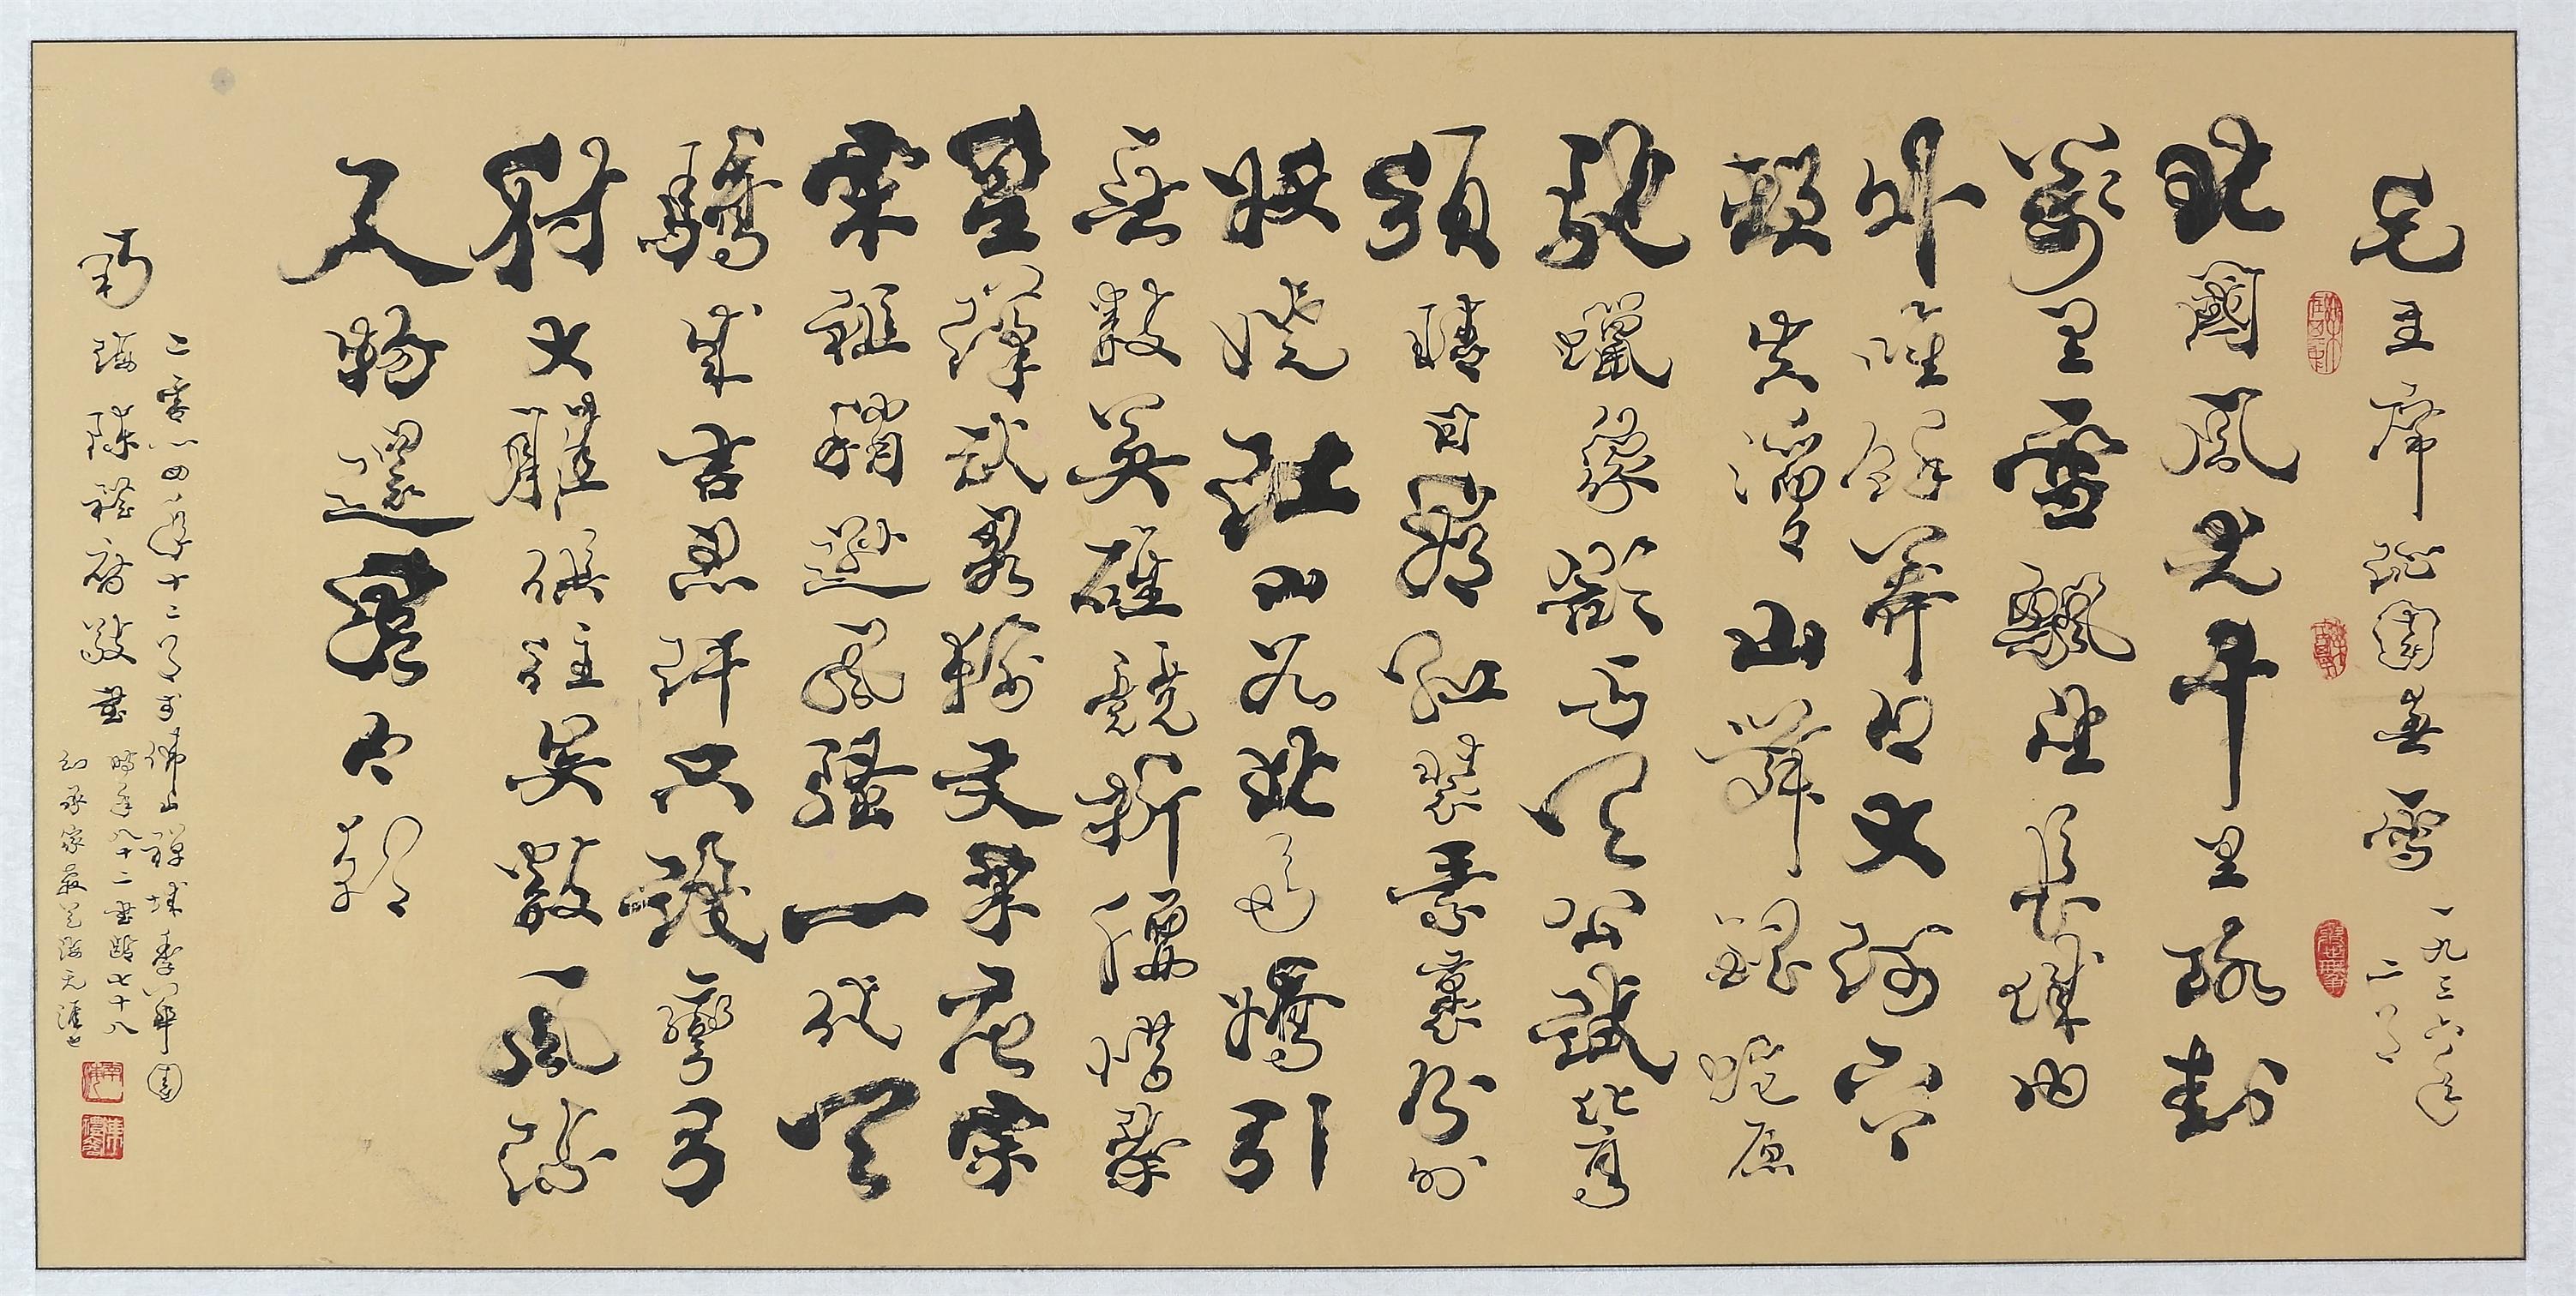 毛主席沁園春雪 一九三六年二月
北國風光千里冰封
萬里雪飄望長城內
外唯餘莽々大河上下
頓失滔々山舞銀蛇原
馳蠟象欲与天公試比高
須晴日看紅裝素裹分外
妖嬈江山如此多嬌引
無數英雄競折腰惜秦
皇漢武略輸文采唐宗
宋祖稍遜風騷一代天
驕成吉思汗只識彎弓
射大雕俱往矣數風流
人物還看今朝
二零一四年十二月於佛山禪城季華園
南海陳禮敬書 時年八十二書齡七十八
承家教藝海无涯也
南海